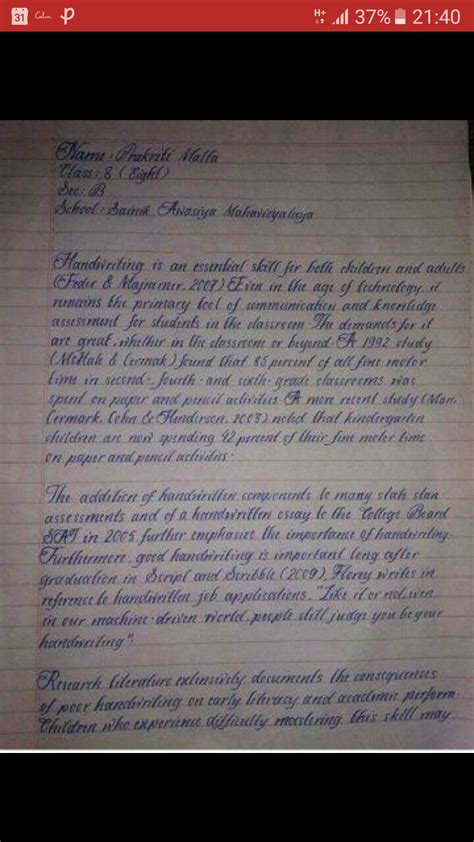 31 H+ 37% 21:40
Name: Prakriti Malla
Class: 8 (Eight)
Sec: B
School: Sainik Awasiya Mahavidyalaya
Handwriting is an essential skill for both children and adults
(Feder & Majnemer, 2007) Even in the age of technology, it
remains the primary tool of communication and knowledge
assessment for students in the classroom. The demands for it
are great, whether in the classroom or beyond. A 1992 study
(McHale & Cermak) found that 85 percent of all fine motor
time in second-, fourth- and sixth- grade classrooms was
spent on paper and pencil activities A more recent study (Marr,
Cermark, Cohn & Henderson, 2003) noted that kindergarten
children are now spending 42 percent of their fine motor time
on paper and pencil activities.
The addition of handwritten components to many state stan
assessments and of a handwritten essay to the College Board
SCAT in 2005 further emphasize the importance of handwriting.
Furthermore, good handwriting is important long after
graduation in Script and Scribble (2009), Florey writes in
reference to handwritten job applications, "Like it or not, even
in our machine-driven world, people still judge you be your
handwriting".
Research literature extensively documents the consequences
of poor handwriting on early literacy and academic perform-
Children who experience difficulty mastering this skill may